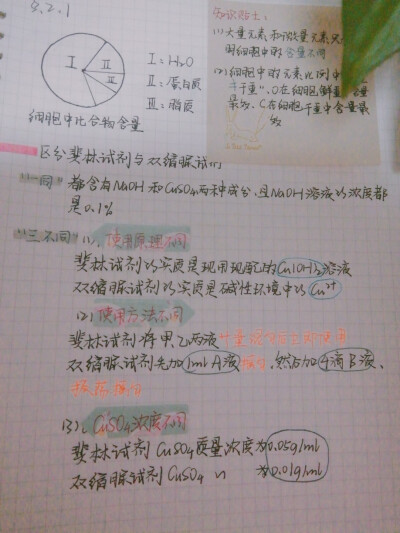 2.2.1
I
II
III
I: H₂O
II: 蛋白质
III: 脂质
细胞中化合物含量
知识贴士:
(1)大量元素和微量元素
的细胞中的含量不同
(2)细胞中的元素比例中
干重", O在细胞鲜重 含量
最多, C在细胞干重中含量最
多
区分斐林试剂与双缩脲试剂
"一同" 都含有NaOH和CuSO₄两种成分,且NaOH溶液的浓度都
是0.1%
"三不同" (1)、使用原理不同
斐林试剂的实质是现用现配的Cu(OH)₂溶液
双缩脲试剂的实质是碱性环境中的Cu²⁺
(2)使用方法不同
斐林试剂将甲乙两液 等量混匀后立即使用
双缩脲试剂先加1ml A液 摇匀, 然后加4滴B液、
振荡摇匀
(3)、CuSO₄浓度不同
斐林试剂CuSO₄质量浓度为0.05g/ml
双缩脲试剂CuSO₄ 〃 为0.01g/ml